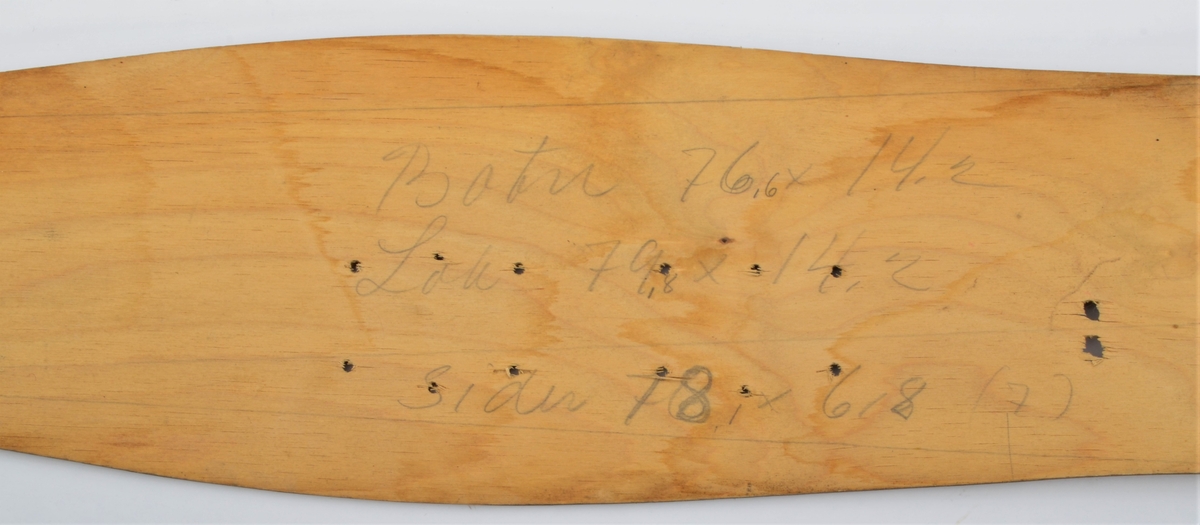 Botn 76,6 x 14,2
Lok 79,8 x 14,2
Sider 78,1 x 6,8 (7)